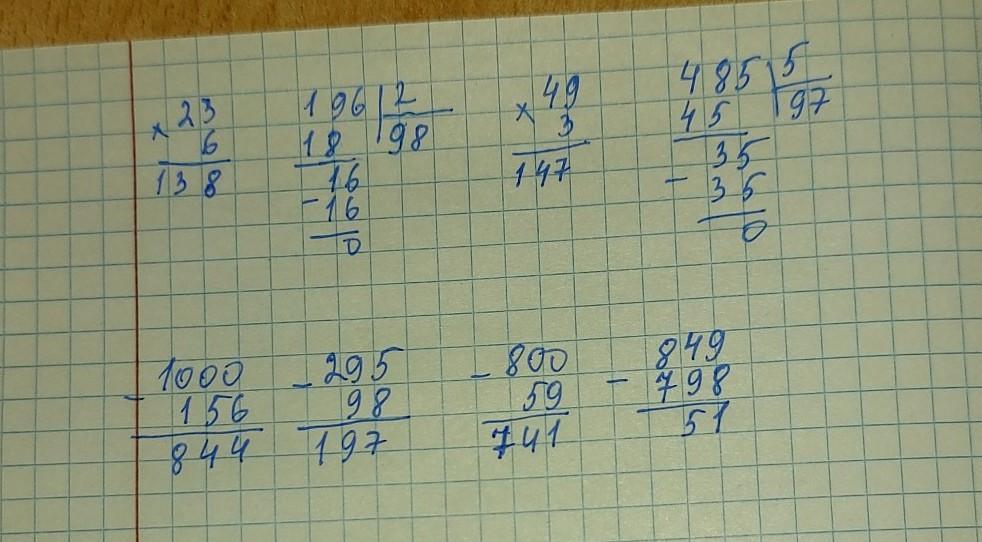 23 196 2 49 485 5
× 6 18 98 × 3 45 97
138 16 147 35
- 16 - 35
0 0
- 1000 - 295 - 800 - 849
156 98 59 798
844 197 741 51